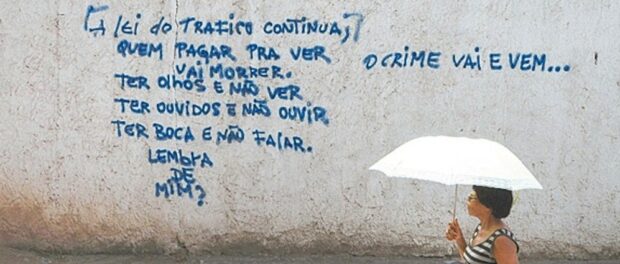 [A lei do TRAFICO CONTINUA;]
QUEM PAGAR PRA VER
VAI MORRER.
TER OlHOS E NÃO VER
TER OUVIDOS E NÃO OUVIR
TER BOCA E NÃO FAlAR.
LEMbRA
DE
MIM?
O CRIME VAI E VEM...